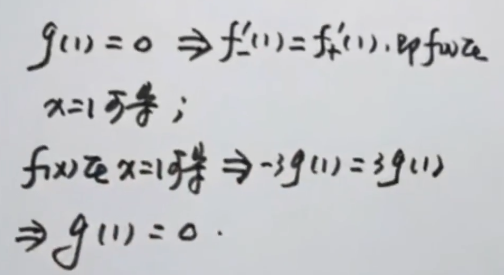 g(1) = 0 ⇒ f₋′(1) = f₊′(1). 即f(x)在
x=1可导;
f(x)在x=1可导 ⇒ -3g(1) = 3g(1)
⇒ g(1) = 0.